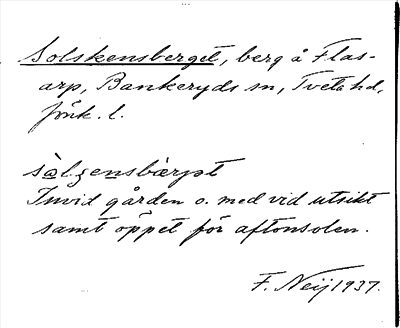 Solskensberget, berg å Flas-
arp, Bankeryds sn, Tveta hd,
Jönk. l.
Invid gården o. med vid utsikt
samt öppet för aftonsolen.
F. Neij 1937.